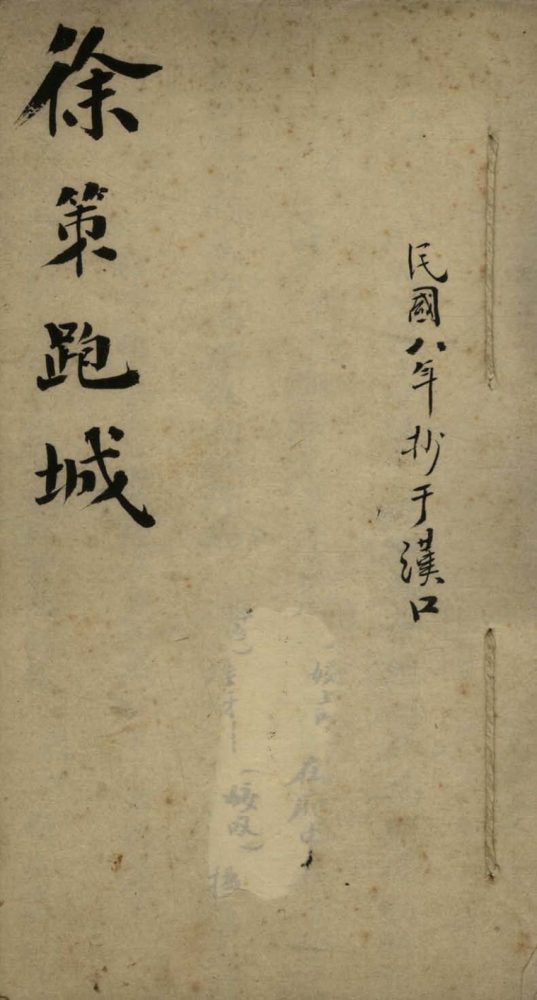 民國八年抄于漢口
徐策跑城